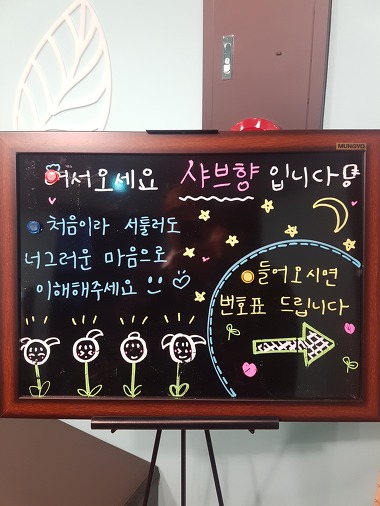 MUNGYO
어서오세요 샤브향 입니다!
처음이라 서툴러도
너그러운 마음으로
이해해주세요
들어오시면
번호표 드립니다